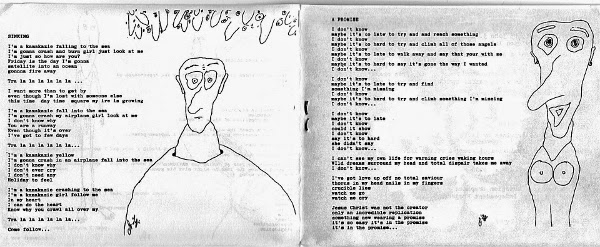 SINKING
I'm a kamakazie falling to the sea
I'm gonna crash and burn girl just look at me
I'm just so how are you?
Friday is the day I'm gonna
satellite into an ocean
gonna fire away
Tra la la la la la ...
I want more than to get by
even though I'm lost with someone else
this time day time square my ire is growing
I'm a kamakazie fall into the sea
I'm gonna crash my airplane girl look at me
I don't know why
You are a runway
Even though it's over
I've got to few days
Tra la la la la la...
I'm a kamakazie yellow
I'm gonna crash in my airplane fall into the sea
I don't know why
I don't ever cry
I don't need any
Holiday to feel
I'm a kamakazie crashing to the sea
I'm a kamakazie girl follow me
In my heart
I can do the heart
Know why you crawl all over my
Tra la la la la la...
Come follow...
A PROMISE
I don't know
maybe it's to late to try and and reach something
I don't know
maybe it's to hard to try and climb all of those angels
I don't know
maybe it's to late to walk away and say that your with me
I don't know
maybe it's to hard to say it's gone the way I wanted
I don't know...
I don't know
maybe it's to late to try and find
something I'm missing
I don't know
maybe it's to hard to try and climb something I'm missing
I don't know...
I don't know
maybe it's to late
I don't know
could it show
I don't know
say it's to hard
she didn't say
I don't know...
I can't see my own life for warning cries waking hours
Wild dreams surround my head and total dispair takes me away
I don't know...
I've got love to off no total saviour
thorns in my head nails in my fingers
crucible lies
watch me go
watch me cry
Jesus Christ was not the creator
only an incredible replication
something now wearing a promise
it's so easy it's in the promise
it's in the promise...